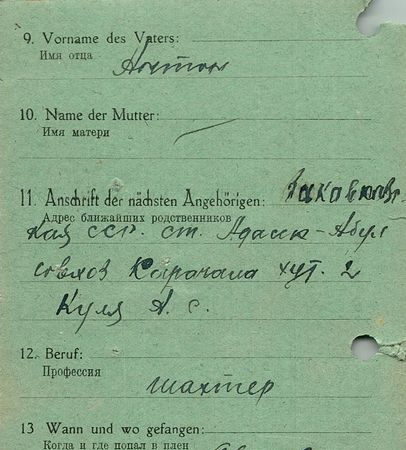 9. Vorname des Vaters:
Имя отца
Антон
10. Name der Mutter:
Имя матери
11. Anschrift der nächsten Angehörigen:
Адрес ближайших родственников
кая ССР. ст. Адасск-Абул
совхоз Карачала хут. 2
Куля А. С.
12. Beruf:
Профессия
шахтер
13 Wann und wo gefangen:
Когда и где попал в плен